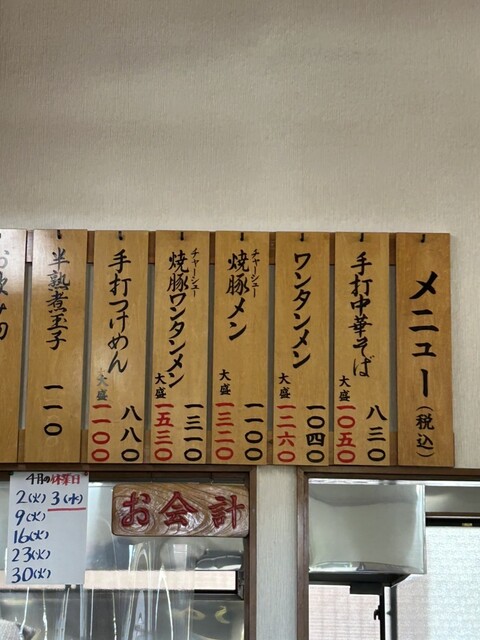 メニュー(税込)
手打中華そば 八三〇
大盛 一〇五〇
ワンタンメン 一〇四〇
大盛 一二六〇
焼豚メン 一一〇〇
チャーシュー
大盛 一三二〇
焼豚ワンタンメン 一三一〇
チャーシュー
大盛 一五三〇
手打つけめん 八八〇
大盛 一一〇〇
半熟煮玉子 一一〇
4月の休業日
2(火) 3(水)
9(火)
16(火)
23(火)
30(火)
お会計